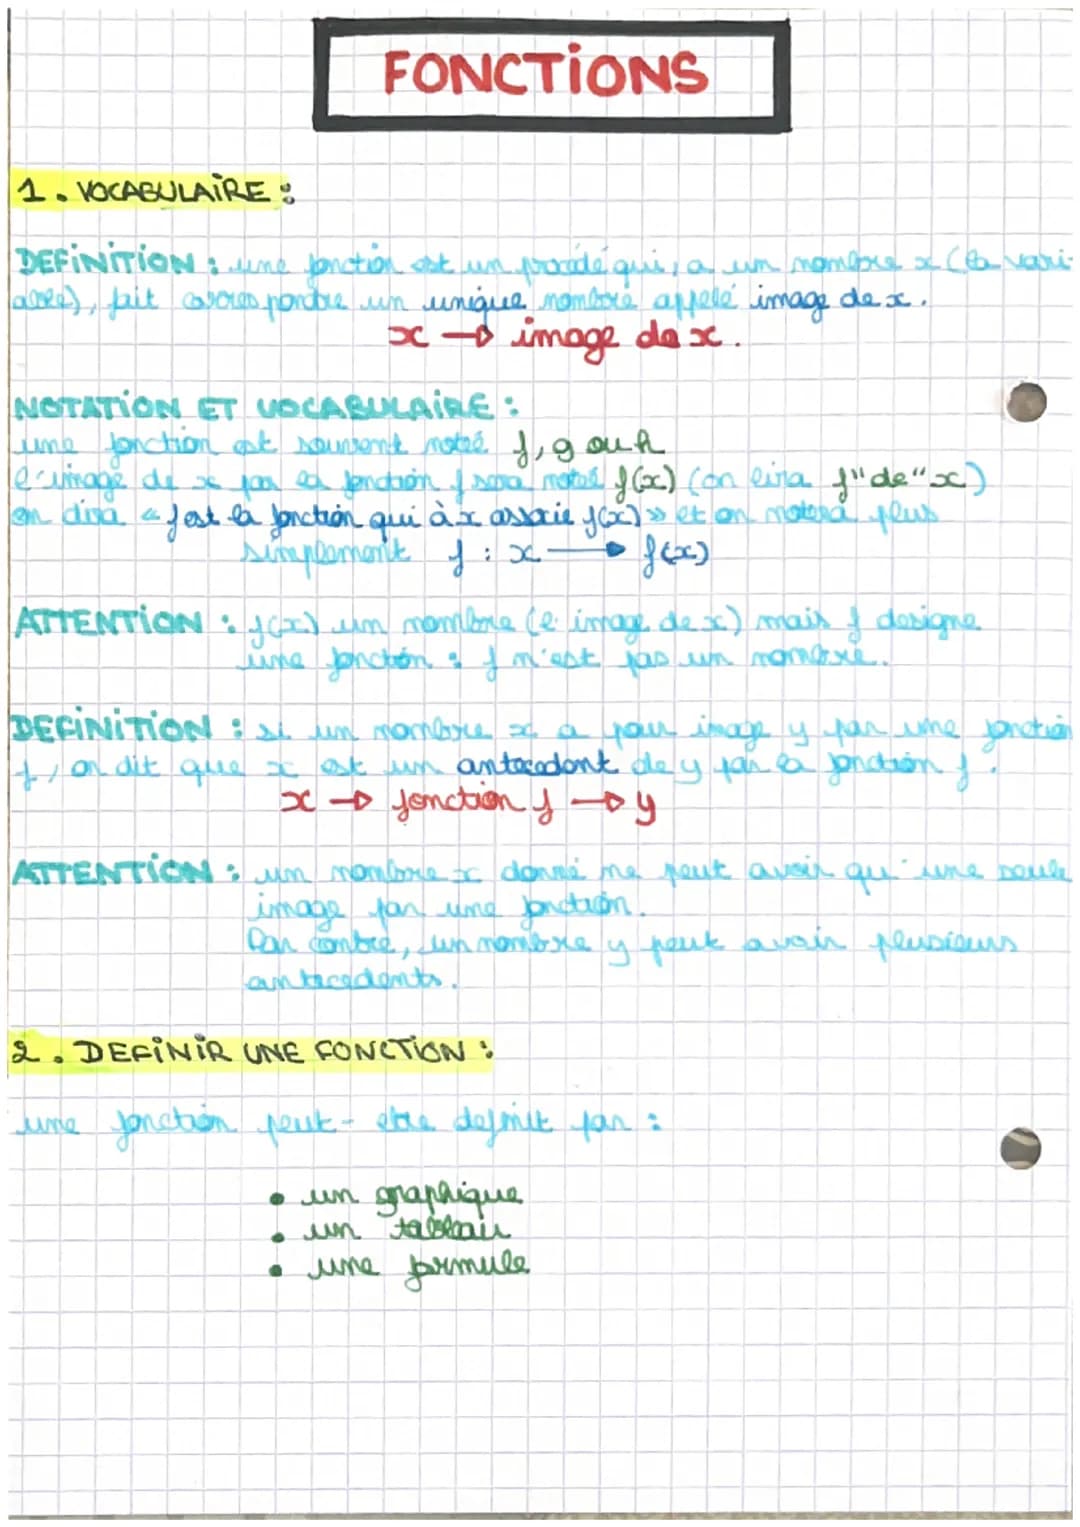 FONCTIONS
1. VOCABULAIRE :
DEFINITION : une fonction est un procédé qui, a un nombre x (la vari-
able), fait correspondre un unique nombre appelé image de x.
x → image de x.
NOTATION ET VOCABULAIRE :
une fonction est souvent noté f, g ou h
l'image de x par la fonction f sera noté f(x) (on lira f "de" x)
on dira « f est la fonction qui à x associe f(x) » et on notera plus
simplement f : x → f(x)
ATTENTION : f(x) un nombre (l'image de x) mais f designe
une fonction : f n'est pas un nombre.
DEFINITION : si un nombre x a pour image y par une fonction
f, on dit que x est un antecedent de y par la fonction f.
x → fonction f → y
ATTENTION : un nombre x donné ne peut avoir qu'une seule
image par une fonction.
Par contre, un nombre y peut avoir plusieurs
antecedents.
2. DEFINIR UNE FONCTION :
une fonction peut-etre definit par :
• un graphique
• un tableau
• une formule